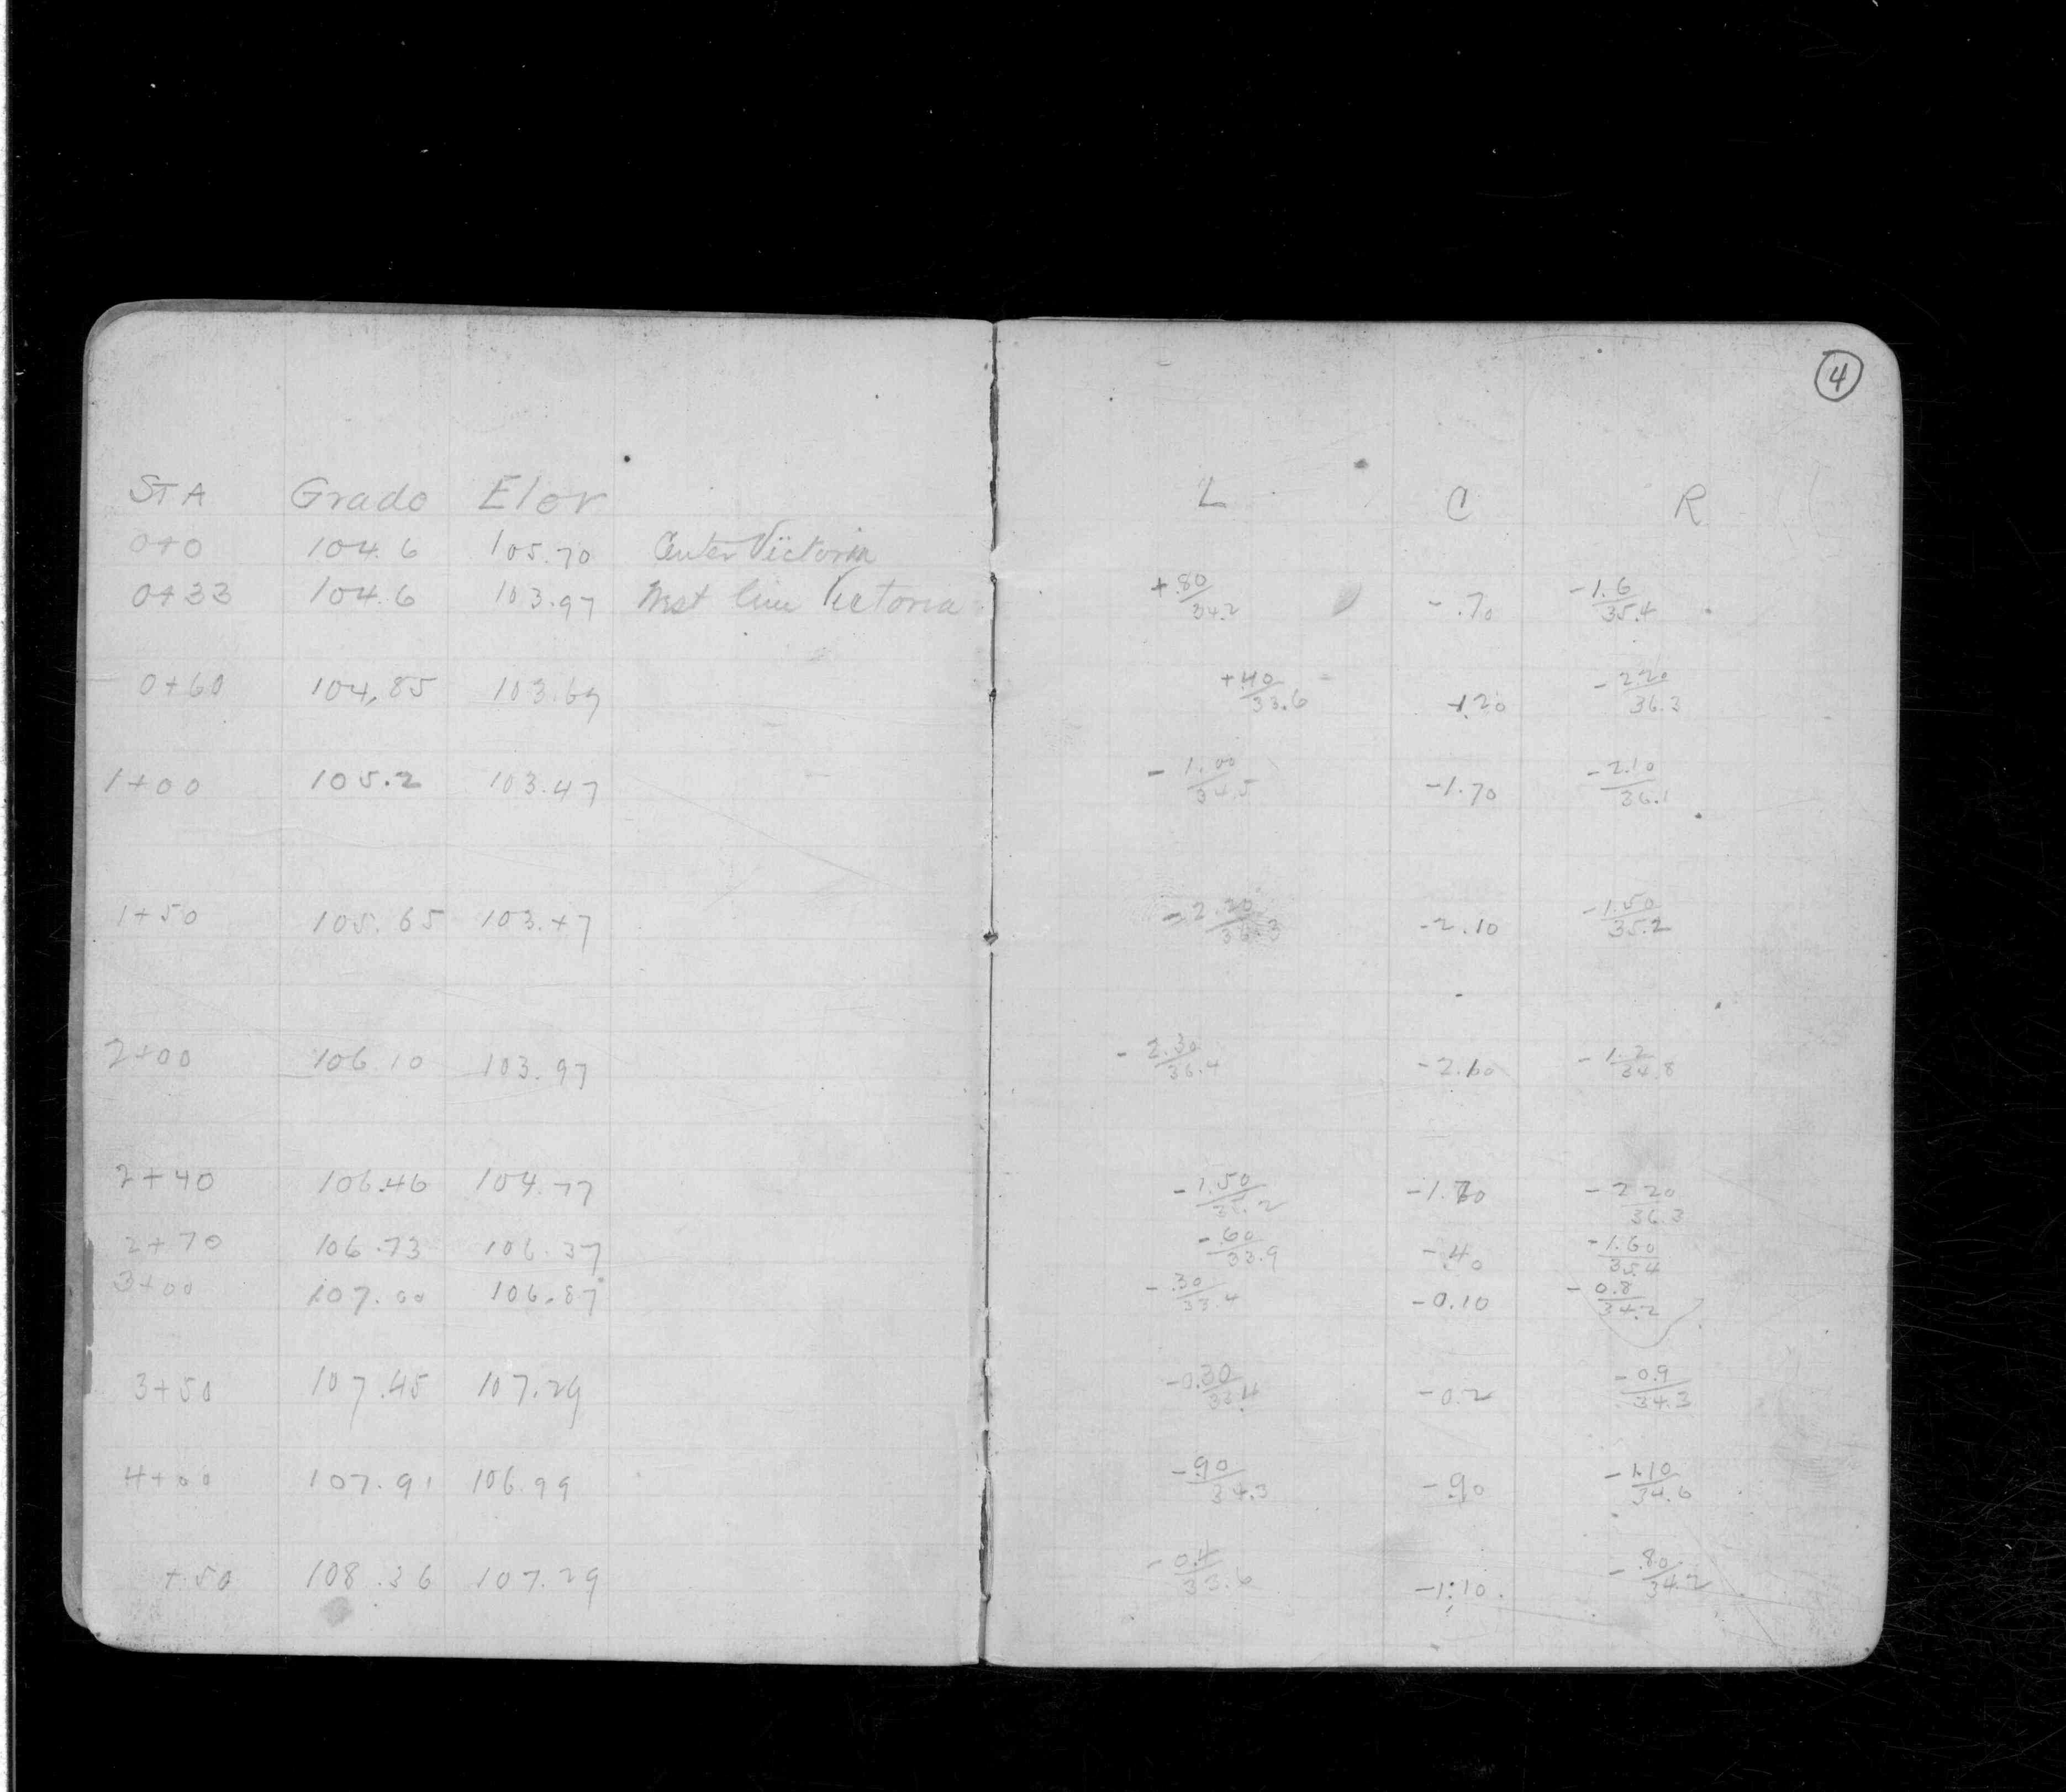 4
STA Grade Elev L C R
0+0 104.6 105.70 Center Victoria
0+33 104.6 103.97 West line Victoria +.80/34.2 -.70 -1.6/35.4
0+60 104.85 103.69 +.40/33.6 -1.20 -2.20/36.3
1+00 105.2 103.47 -1.00/34.5 -1.70 -2.10/36.1
1+50 105.65 103.47 -2.20/36.3 -2.10 -1.50/35.2
2+00 106.10 103.97 -2.30/36.4 -2.10 -1.2/34.8
2+40 106.46 104.77 -1.50/35.2 -1.70 -2.20/36.3
2+70 106.73 106.37 -.60/33.9 -.40 -1.60/35.4
3+00 107.00 106.87 -.30/33.4 -0.10 -0.8/34.2
3+50 107.45 107.29 -0.30/33.4 -0.2 -0.9/34.3
4+00 107.91 106.99 -.90/34.3 -.90 -1.10/34.6
+50 108.36 107.29 -0.4/33.6 -1.10 -.80/34.2